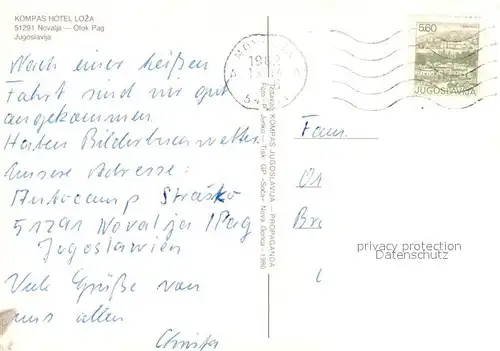 KOMPAS HOTEL LOŽA
51291 Novalja — Otok Pag
Jugoslavija
Nach einer heißen
Fahrt sind wir gut
angekommen.
Haben Bilderbuchwetter.
Unsere Adresse:
Autocamp Straško
51291 Novalja/Pag
Jugoslawien
Viele Grüße von
uns allen
Christa
KOMPAS JUGOSLAVIJA — PROPAGANDA
Tisk GP »Soča« Nova Gorica - 1980
NOVALJA
5.60
JUGOSLAVIJA
Fam.
Br
privacy protection
Datenschutz